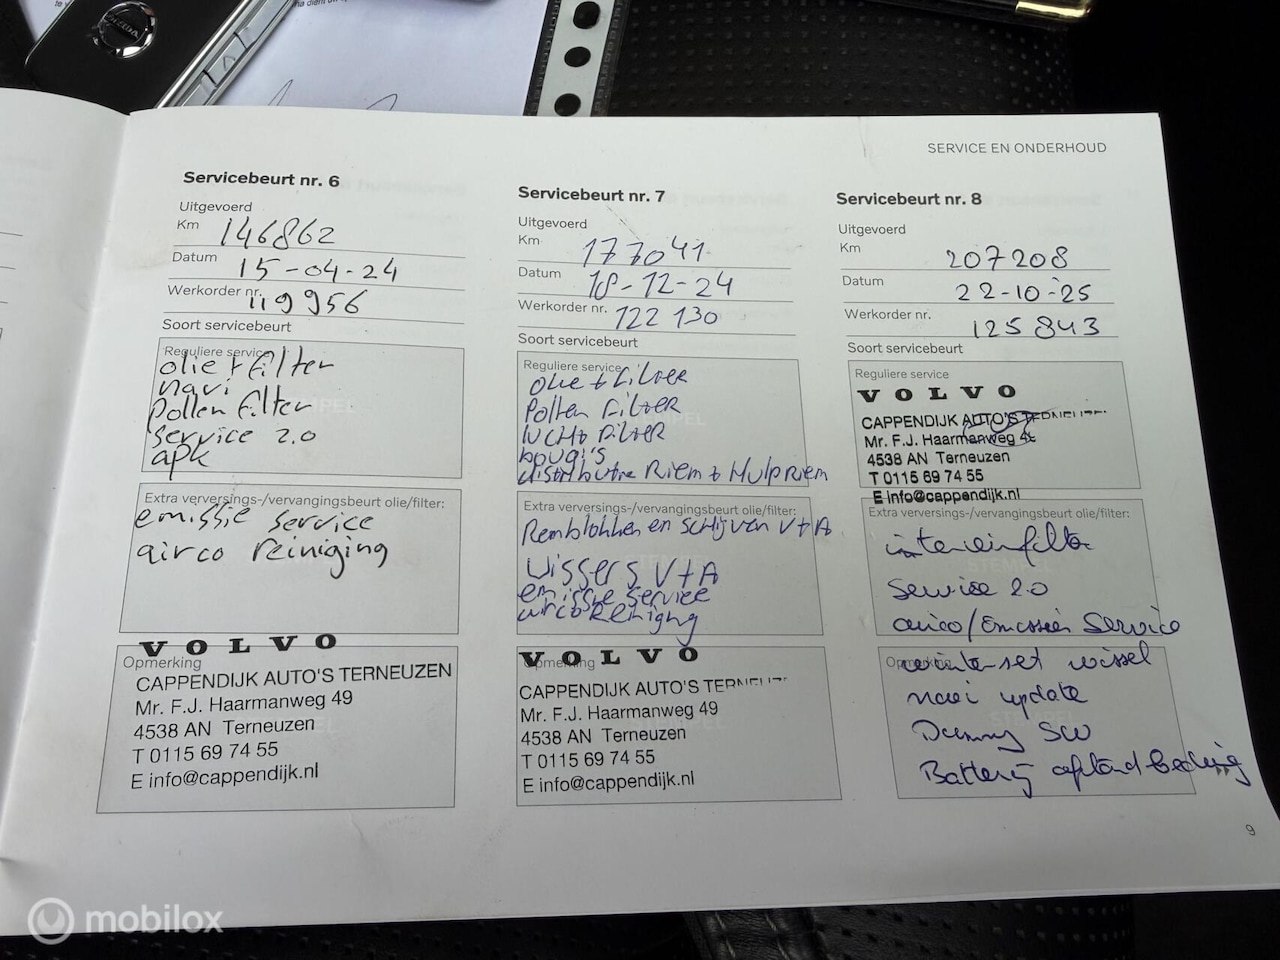 SERVICE EN ONDERHOUD
Servicebeurt nr. 6
Uitgevoerd
Km 146862
Datum 15-04-24
Werkorder nr. 119956
Soort servicebeurt
Reguliere service
olie + filter
navi
pollen filter
service 2.0
apk
Extra verversings-/vervangingsbeurt olie/filter:
emissie service
airco reiniging
Opmerking
VOLVO
CAPPENDIJK AUTO'S TERNEUZEN
Mr. F.J. Haarmanweg 49
4538 AN Terneuzen
T 0115 69 74 55
E info@cappendijk.nl
Servicebeurt nr. 7
Uitgevoerd
Km 177041
Datum 18-12-24
Werkorder nr. 122130
Soort servicebeurt
Reguliere service
olie + filter
Pollen filter
lucht filter
bougi's
distributie Riem + Hulpriem
Extra verversings-/vervangingsbeurt olie/filter:
Remblokken en schijven V+A
Wissers V+A
emissie service
airco Reiniging
Opmerking
VOLVO
CAPPENDIJK AUTO'S TERNEUZEN
Mr. F.J. Haarmanweg 49
4538 AN Terneuzen
T 0115 69 74 55
E info@cappendijk.nl
Servicebeurt nr. 8
Uitgevoerd
Km 207208
Datum 22-10-25
Werkorder nr. 125843
Soort servicebeurt
Reguliere service
VOLVO
CAPPENDIJK AUTO'S TERNEUZEN
Mr. F.J. Haarmanweg 49
4538 AN Terneuzen
T 0115 69 74 55
E info@cappendijk.nl
Extra verversings-/vervangingsbeurt olie/filter:
Service 2.0
airco/Emissie Service
Opmerking
winterset wissel
navi update
SW
Batterij afstandbediening
9
mobilox